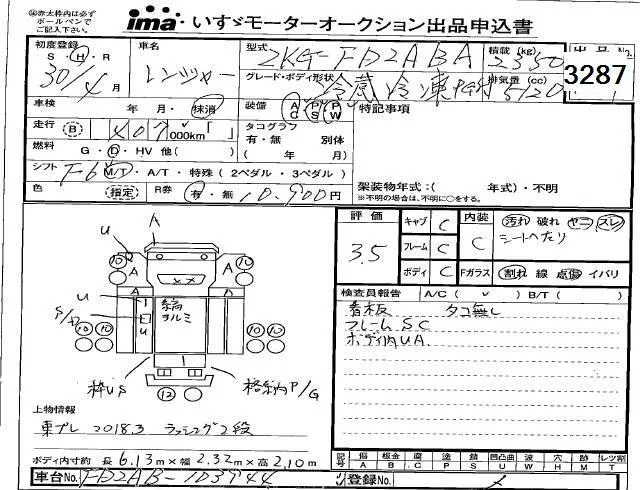 ㊟赤太枠内は必ず
ボールペンで
ご記入下さい。
ima いすゞモーターオークション出品申込書
初度登録 S・H・R 30/4月
車名 レンジャー
型式 2KG-FD2ABA
積載(kg) 2350
出品No.
3287
グレード・ボディ形状 冷蔵冷凍
排気量(cc) 5120
車検 年 月・抹消
装備 AC PS PW
特記事項
走行 B 407 000km「 」
タコグラフ 有・無 別体
( 年 月)
燃料 G・D・HV 他( )
シフト F6 M/T・A/T・特殊(2ペダル・3ペダル)
架装物年式:( 年式)・不明
※不明の場合は、不明に○をする。
色 (指定) R券 有・無 10,900円
評価 3.5
キャブ C
フレーム C
ボディ C
内装 C
汚れ 破れ ヤコ スレ
シートヘたり
Fガラス 割れ 線 点傷 イバリ
検査員報告 A/C( ✓ ) B/T( )
看板 タコ無し
フレームSC
ボディ内UA
A
U
10 10 A A 10
A A
U
S/A
U
縞
ヲルミ
10 10 10 10
枠US
12
格納P/G
上物情報
東プレ 2018.3 ラッシング2段
ボディ内寸約 長6.13m×幅2.32m×高2.10m
記号 傷 板金 腐 塗 錆 凹凸曲 波 穴 跡 レンズ割
A B C P S U W H M T
車台No. FD2AB-103744
登録No.